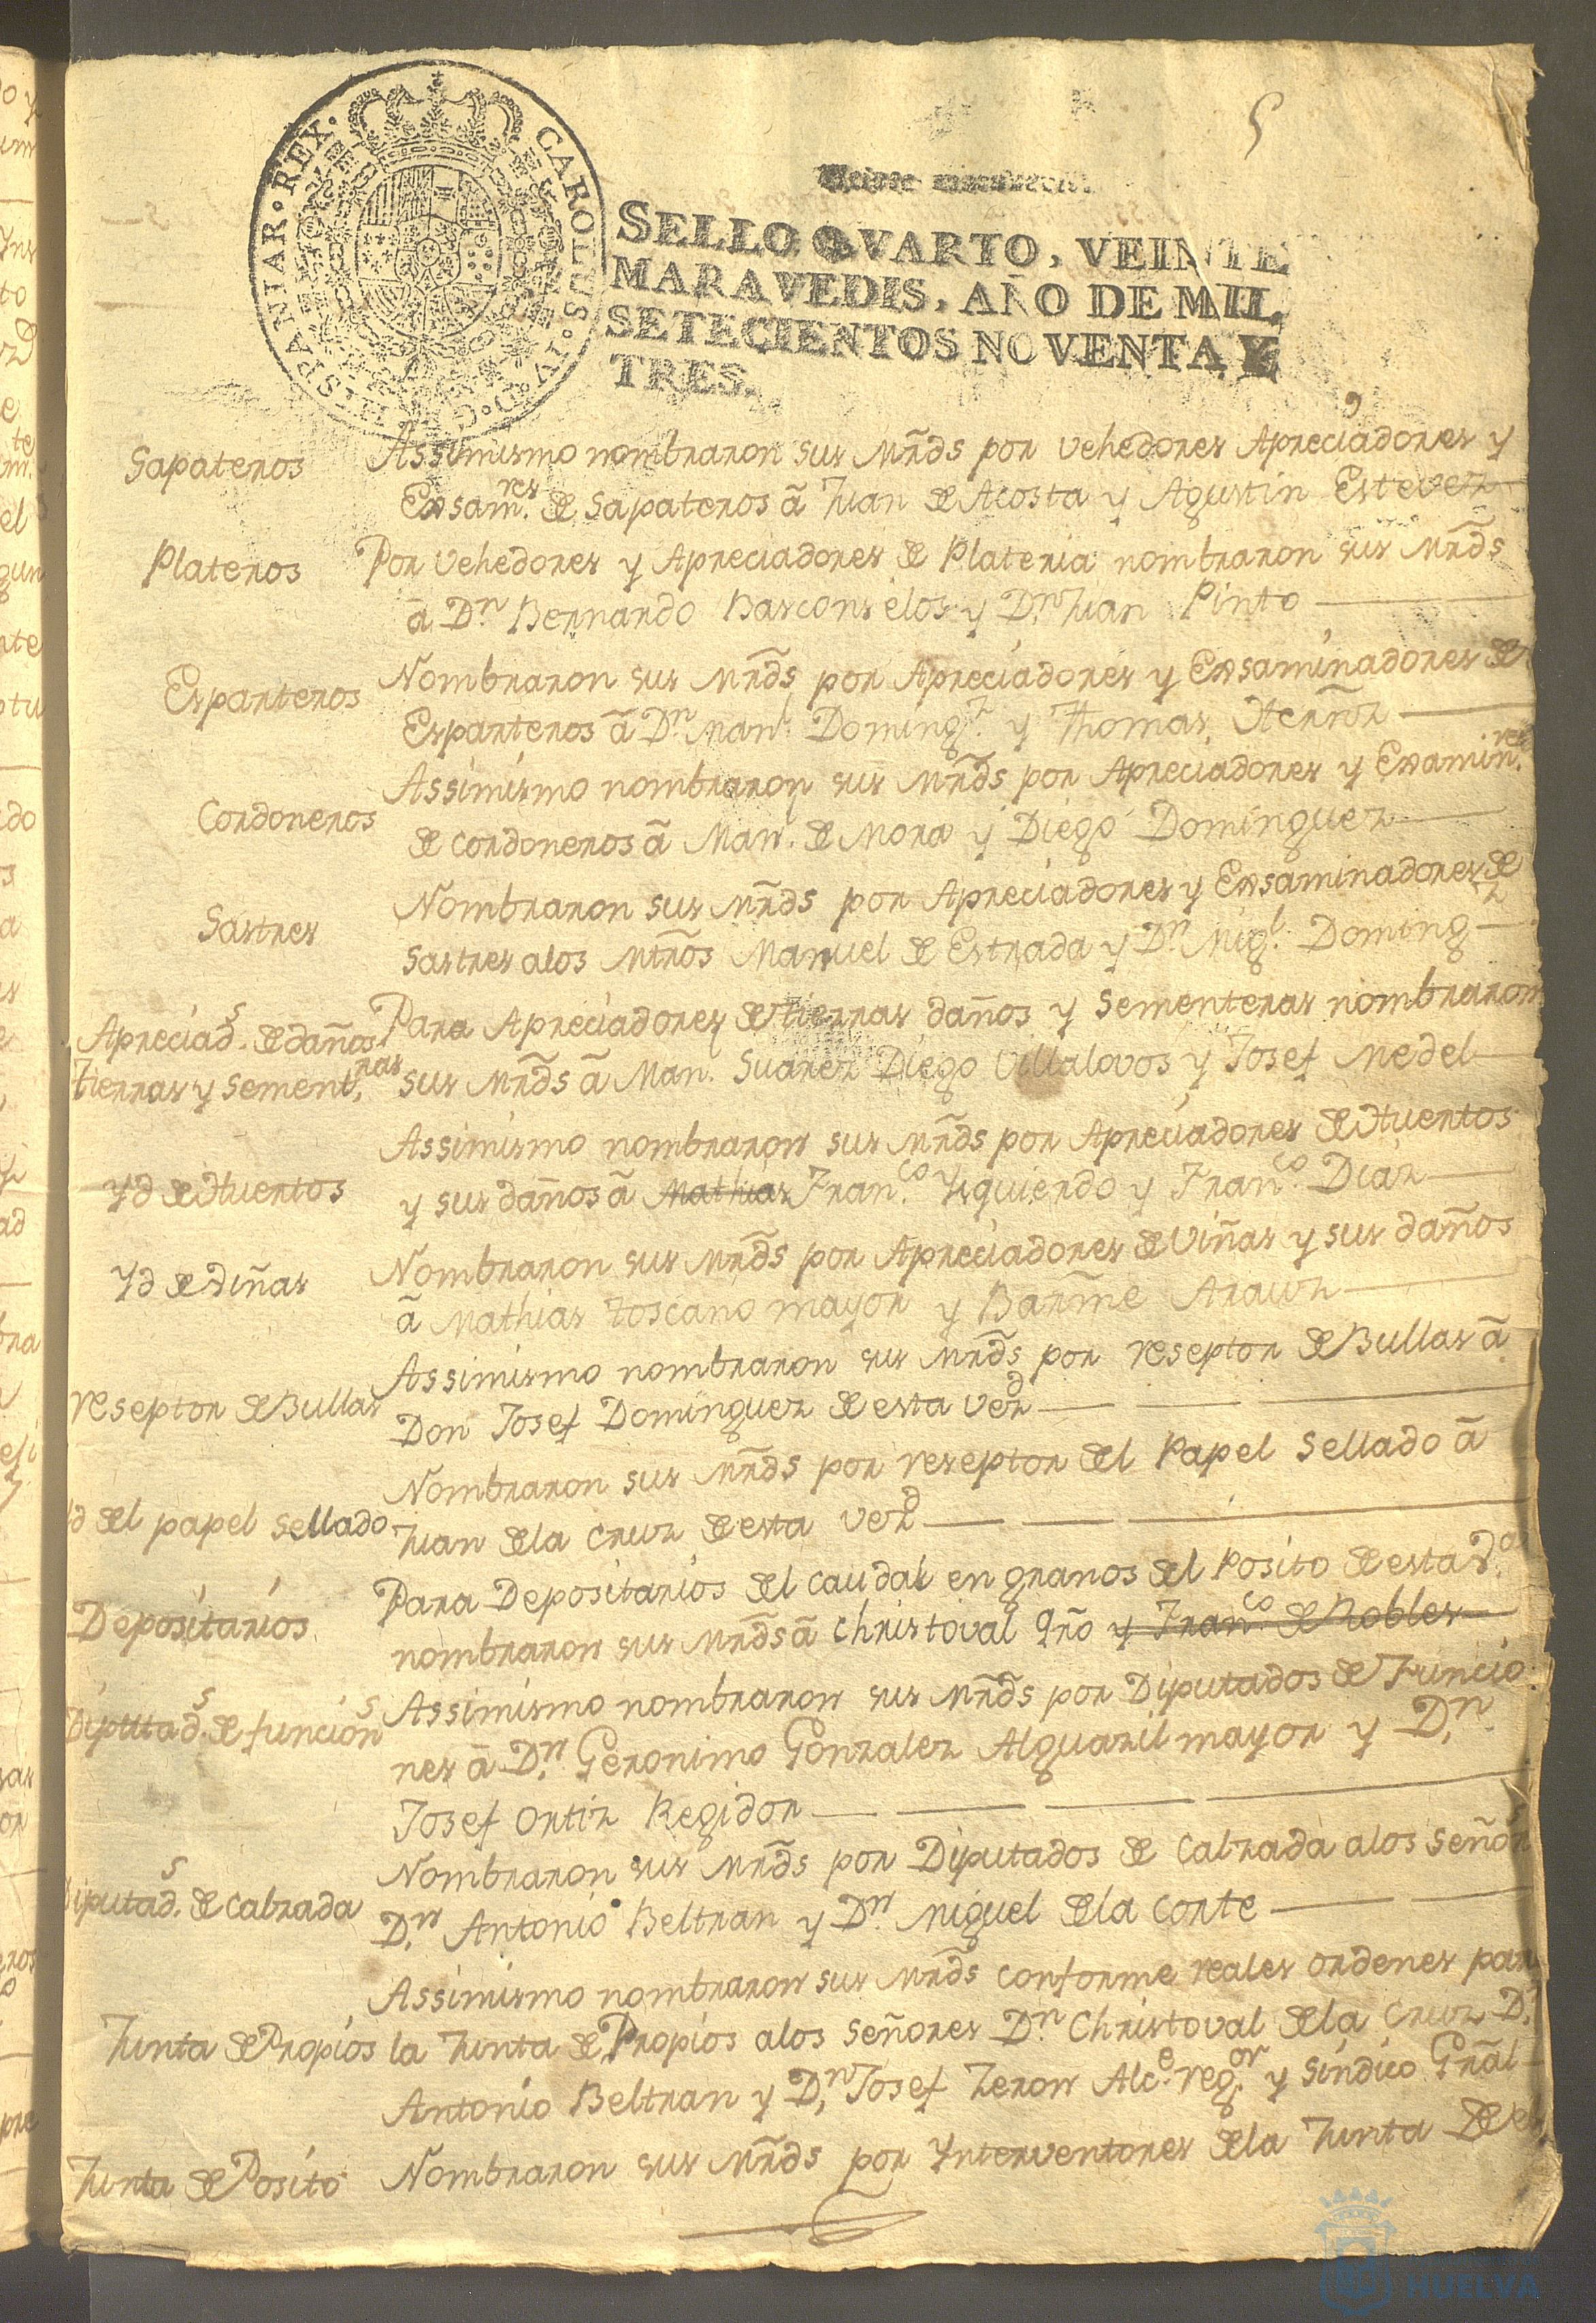 5
CAROLUS . IV . D . G . HISPANIAR . REX .
SELLO QVARTO, VEINTE
MARAVEDIS, AÑO DE MIL
SETECIENTOS NOVENTA Y
TRES.
Sapateros
Assimismo nombraron sus Mr̃ds por vehedores Apreciadores y
Exsam.res de Sapateros â Juan de Acosta y Agustin Estevez
Plateros
Por vehedores y Apreciadores de Plateria nombraron sus Mr̃ds
â Dn. Bernardo Basconselos y Dn. Juan Pinto
Esparteros
Nombraron sus Mr̃ds por Apreciadores y Exsaminadores de
Esparteros â Dn. Manl. Domingz. y Thomas Herñz
Cordoneros
Assimismo nombraron sus Mr̃ds por Apreciadores y Examin.res
de cordoneros â Manl. de Mora y Diego Dominguez
Sastres
Nombraron sus Mr̃ds por Apreciadores y Exsaminadores de
Sastres alos Mtr̃os Manuel de Estrada y Dn. Migl. Domingz
Apreciads. de daños
tierras y sement.ras
Para Apreciadores de tierras daños y Sementeras nombraron
sus Mr̃ds â Man. Suarez Diego Villalovos y Josef Medel
Yd de Huertos
Assimismo nombraron sus Mr̃ds por Apreciadores de Huertos
y sus daños â Mathias Franco. Ysquierdo y Franco. Diaz
Yd de viñas
Nombraron sus Mr̃ds por Apreciadores de Viñas y sus daños
â Mathias Toscano mayor y Bar̃me Arauz
reseptor de Bullas
Assimismo nombraron sus Mr̃ds por reseptor de Bullas â
Don Josef Dominguez de esta vezd
Id del papel sellado
Nombraron sus Mr̃ds por reseptor del Papel Sellado â
Juan dela Cruz de esta vezd
Depositarios
Para Depositarios del caudal en granos del Posito de esta Va.
nombraron sus Mr̃ds â Christoval Qr̃o y Franco. de Robles
Diputads. de funcions
Assimismo nombraron sus Mr̃ds por Diputados de Funcio
nes â Dn. Geronimo Gonzalez Alguazil mayor y Dn.
Josef Ortiz Regidor
Diputads. de Calzada
Nombraron sus Mr̃ds por Diputados de Calzada alos Señors
Dn. Antonio Beltran y Dn. Miguel dela Corte
Junta de Propios
Assimismo nombraron sus Mr̃ds conforme reales ordenes par
la Junta de Propios alos Señores Dn. Christoval dela Cruz D.
Antonio Beltran y Dn. Josef Zeron Alce. regor. y Sindico Gr̃al
Junta de Posito
Nombraron sus Mr̃ds por Ynterventores dela Junta de el
HUELVA